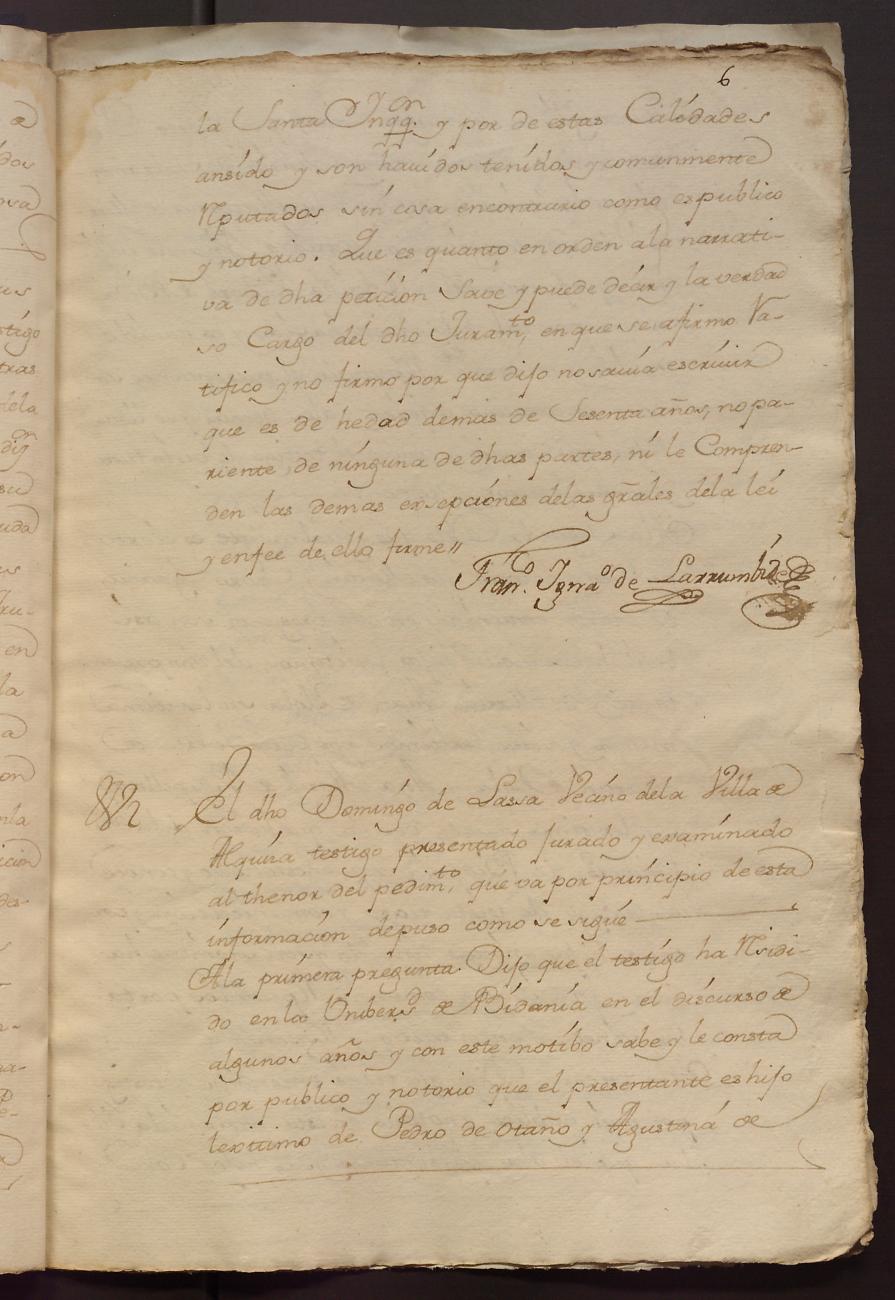 6
la Santa Ynqq.on y por de estas Calidades
ansido y son hauidos tenidos y comunmente
Rputados sin cosa encontrario como es publico
y notorio. Que es quanto en orden ala narrati-
va de dha peticion Save y puede decir y la verdad
so Cargo del dho Juram.to, en que se afirmo Ra-
tifico y no firmo por que dijo no sauia escriuir
que es de hedad demas de Sesenta años, no pa-
riente de ninguna de dhas partes, ni le Compren-
den las demas exsepciones delas grâles dela lei
y enfee de ello firme //
Fran.co Ygna.o de Larrumbide
El dho Domingo de Lassa Vecino dela Villa de
Alquiza testigo presentado Jurado y examinado
al thenor del pedim.to, que va por principio de esta
informacion depuso como se sigue
Ala primera pregunta. Dijo que el testigo ha Rsidi-
do en la Unibers.d de Bidania en el discurso de
algunos años y con este motibo sabe y le consta
por publico y notorio que el presentante es hijo
lexitimo de Pedro de Otaño y Agustina de